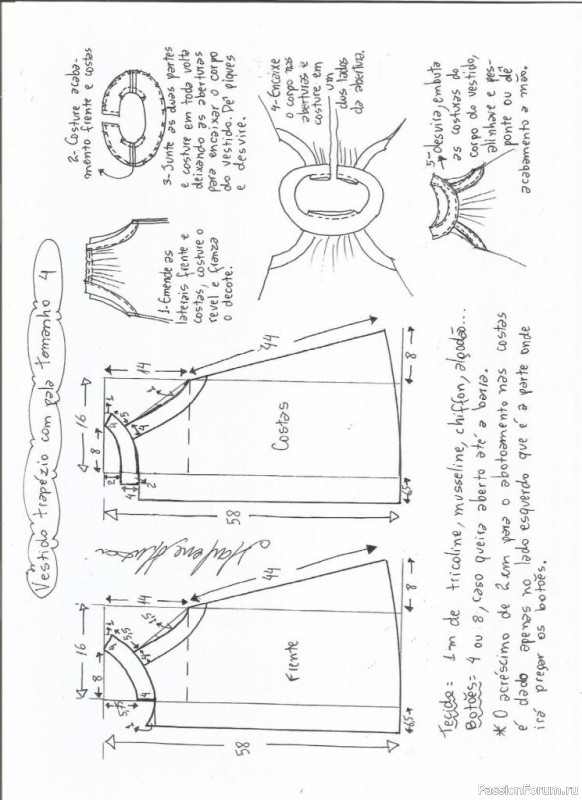 Vestido trapézio com pala tamanho 4
1-Emende as
laterais frente e
costas, costure o
revel e franza
o decote.
2- Costure acaba-
mento frente e costas
3-Junte as duas partes
e costure em toda volta
deixando as aberturas
para encaixar o corpo
do vestido. Dê piques
e desvire.
4-Encaixe
o corpo nas
aberturas e
costure em
um
dos lados
da abertura.
5-desvira, embuta
as costuras do
corpo do vestido,
alinhave e pes-
ponte ou dê
acabamento a mão.
58
16
8
14
44
4
1,5
8
6,5
Frente
58
16
8
14
44
2
4
2
8
6,5
Costas
Tecido= 1m de tricoline, musseline, chiffon, algodão...
Botões= 4 ou 8, caso queira aberto até a barra.
* O acréscimo de 2cm para o abotoamento nas costas
é dado apenas no lado esquerdo que é a parte onde
irá pregar os botões.
PassionForum.ru